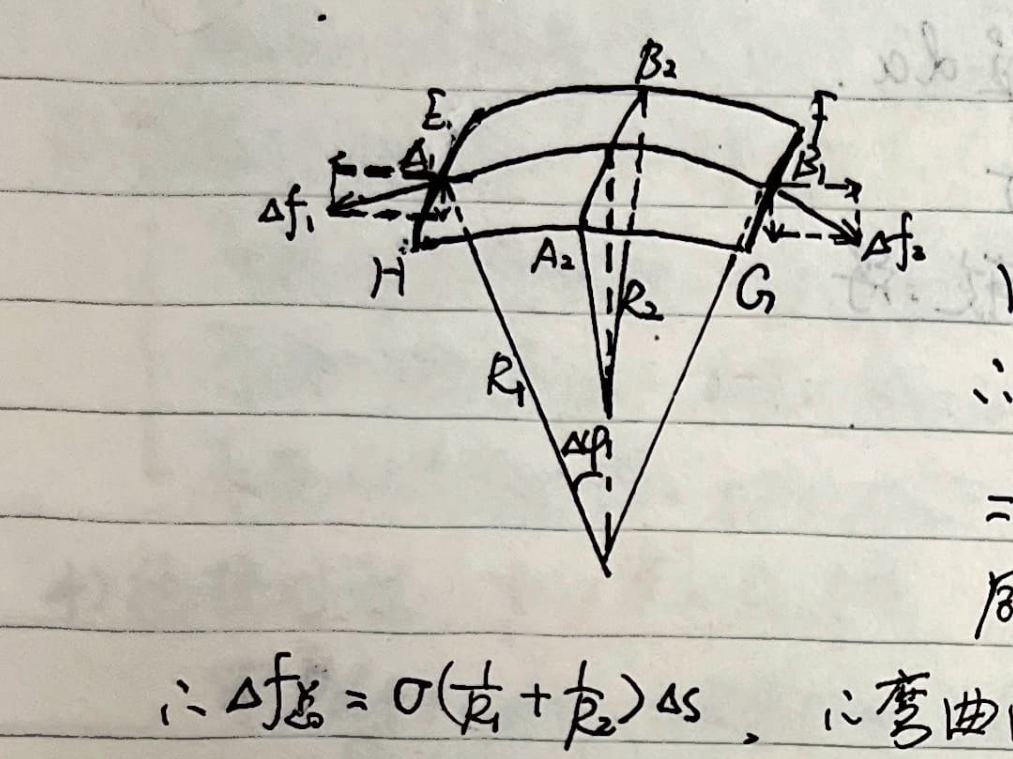 B₂
E F
A₁ B₁
Δf₁ Δf₂
H A₂ G
R₂
R₁
Δφ
∴ Δf总 = σ(1/R₁ + 1/R₂)ΔS, ∴弯曲